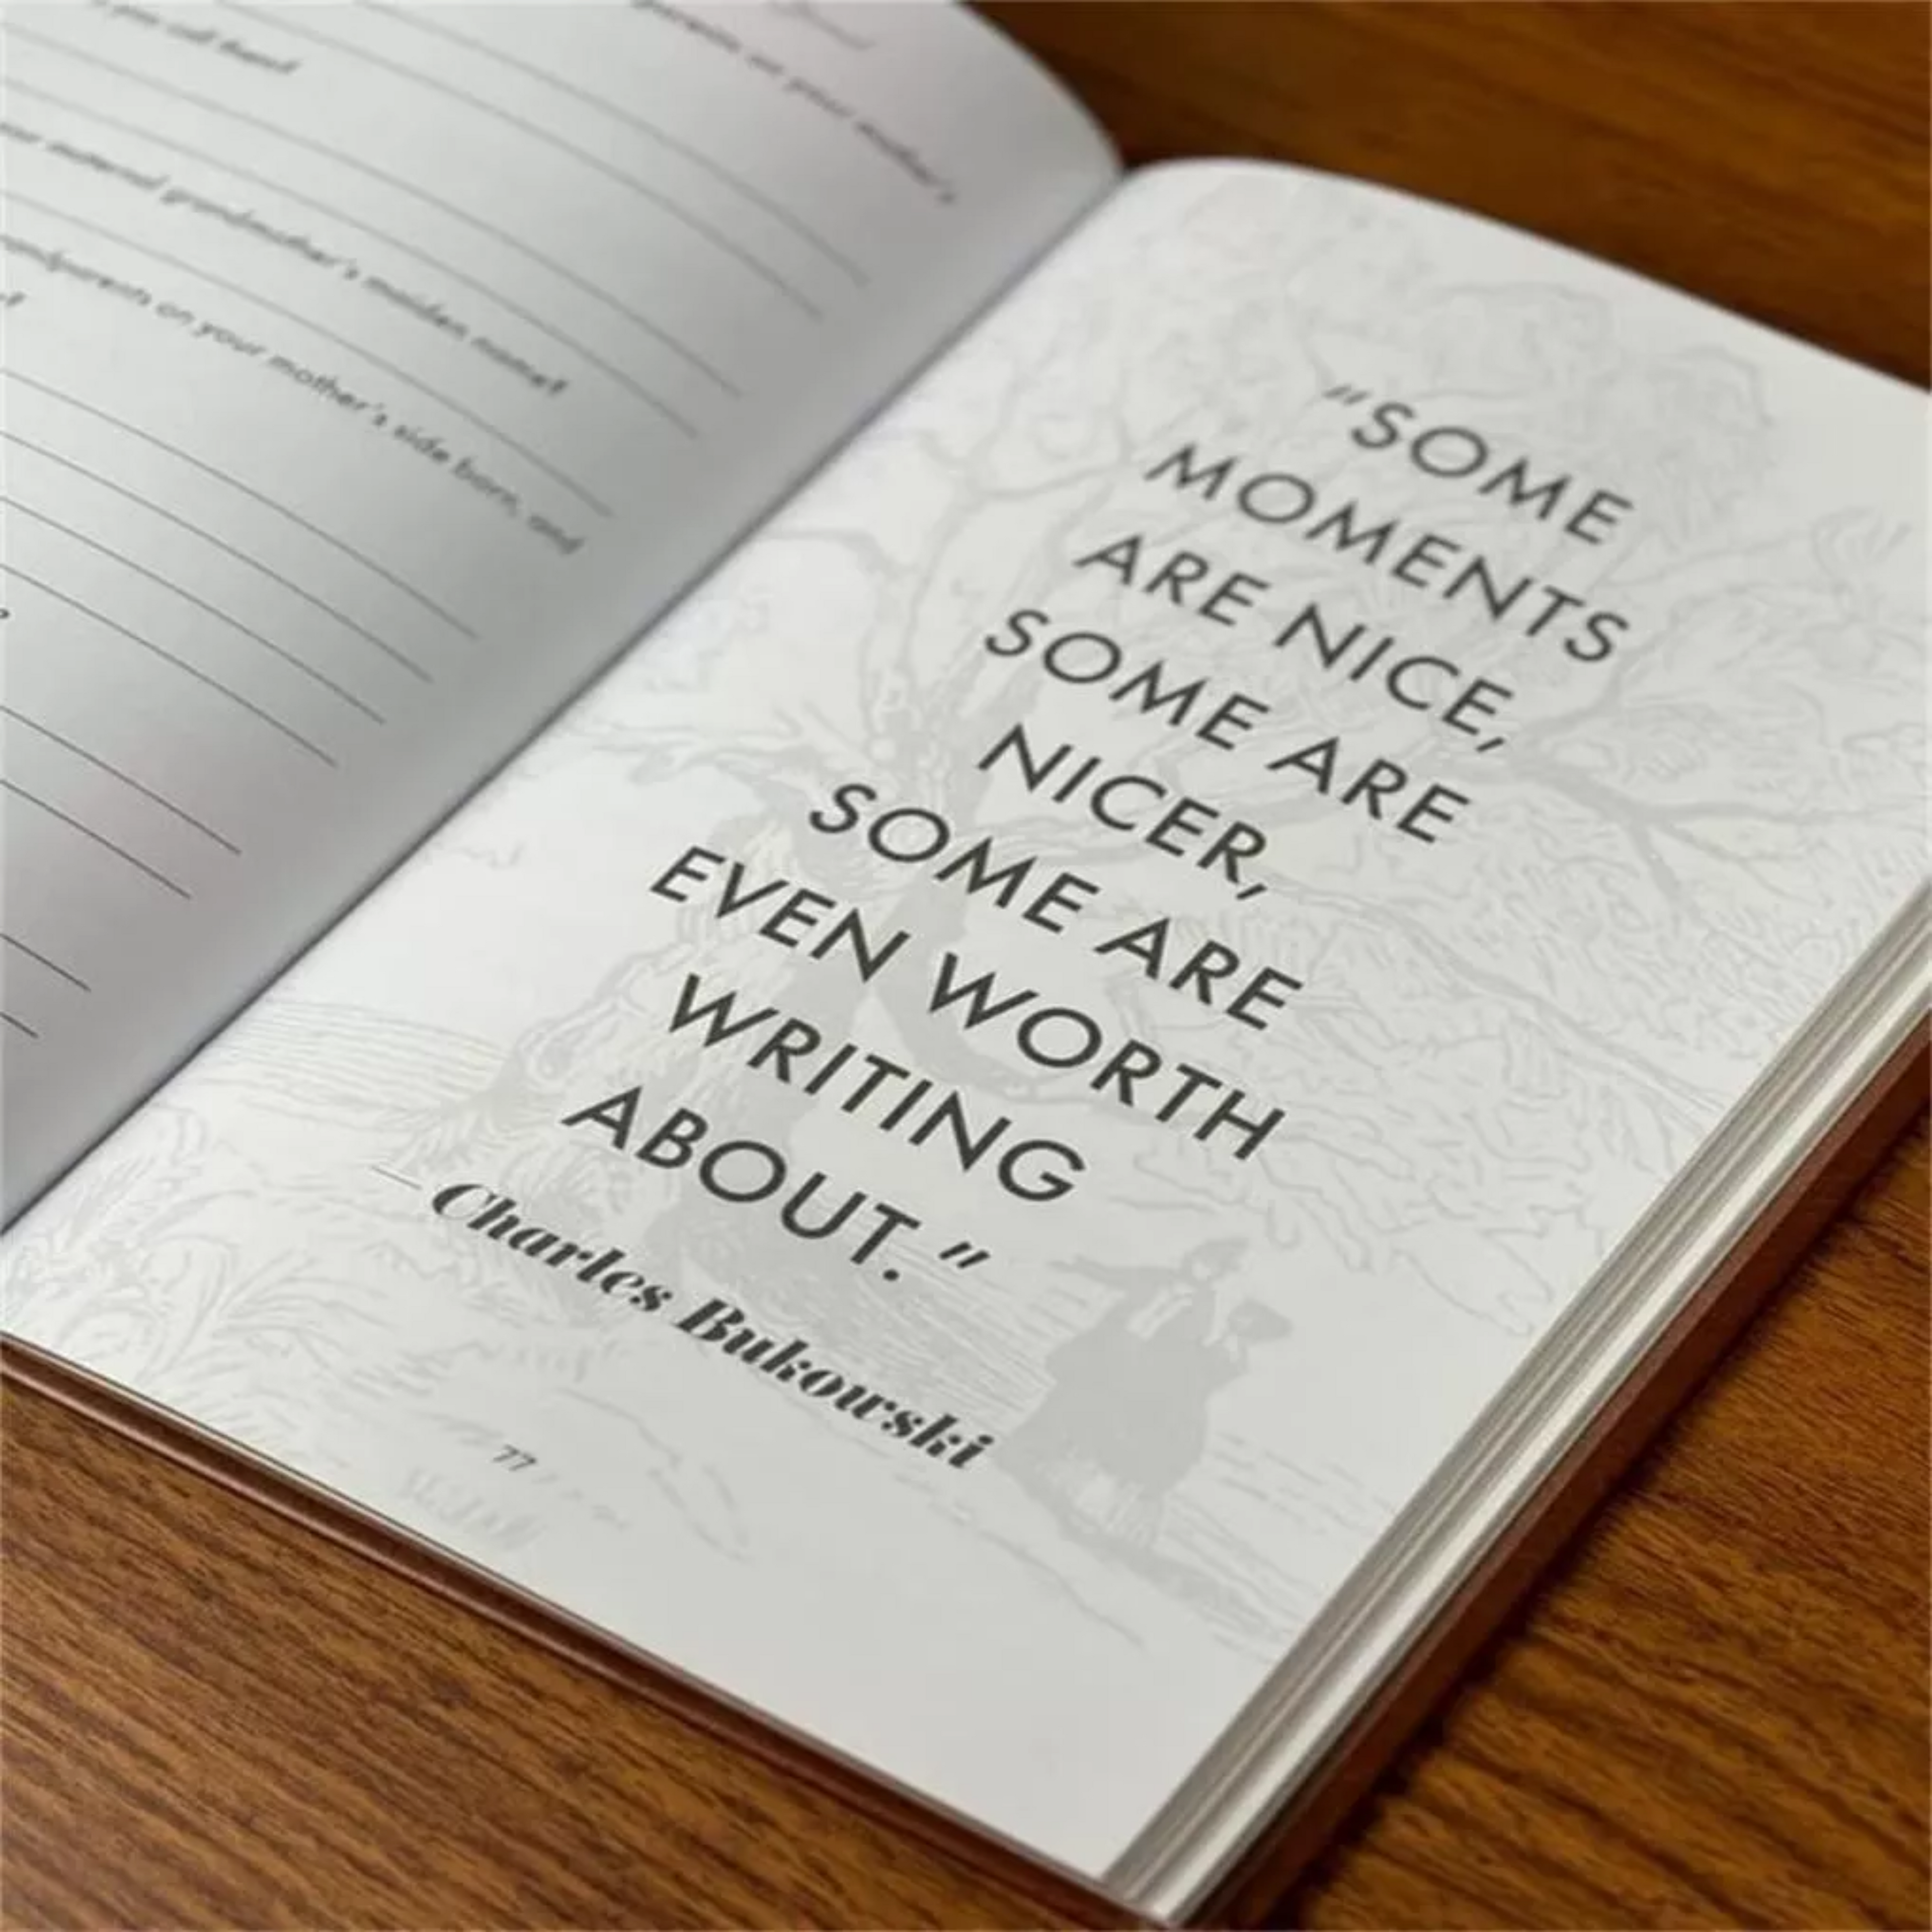 you call them?
parents on your mother's
maternal grandmother's maiden name?
grandparents on your mother's side born, and
"SOME
MOMENTS
ARE NICE,
SOME ARE
NICER,
SOME ARE
EVEN WORTH
WRITING
ABOUT."
— Charles Bukowski
77